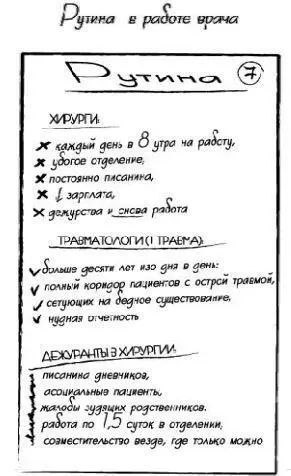 Рутина в работе врача
Рутина 7
ХИРУРГИ:
× каждый день в 8 утра на работу,
× убогое отделение,
× постоянно писанина,
× ↓ зарплата,
× дежурства и снова работа
ТРАВМАТОЛОГИ (1 ТРАВМА):
✓ больше десяти лет изо дня в день:
✓ полный коридор пациентов с острой травмой,
✓ сетующих на бедное существование,
✓ нудная отчетность
ДЕЖУРАНТЫ В ХИРУРГИИ:
писанина дневников,
асоциальные пациенты,
жалобы зудящих родственников.
работа по 1,5 суток в отделении,
совместительство везде, где только можно